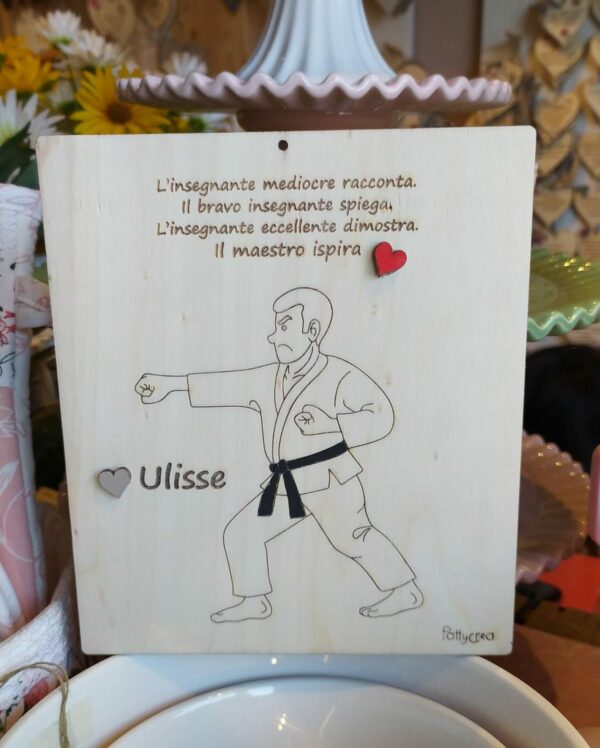 L'insegnante mediocre racconta.
Il bravo insegnante spiega.
L'insegnante eccellente dimostra.
Il maestro ispira
Ulisse
Pattycrea